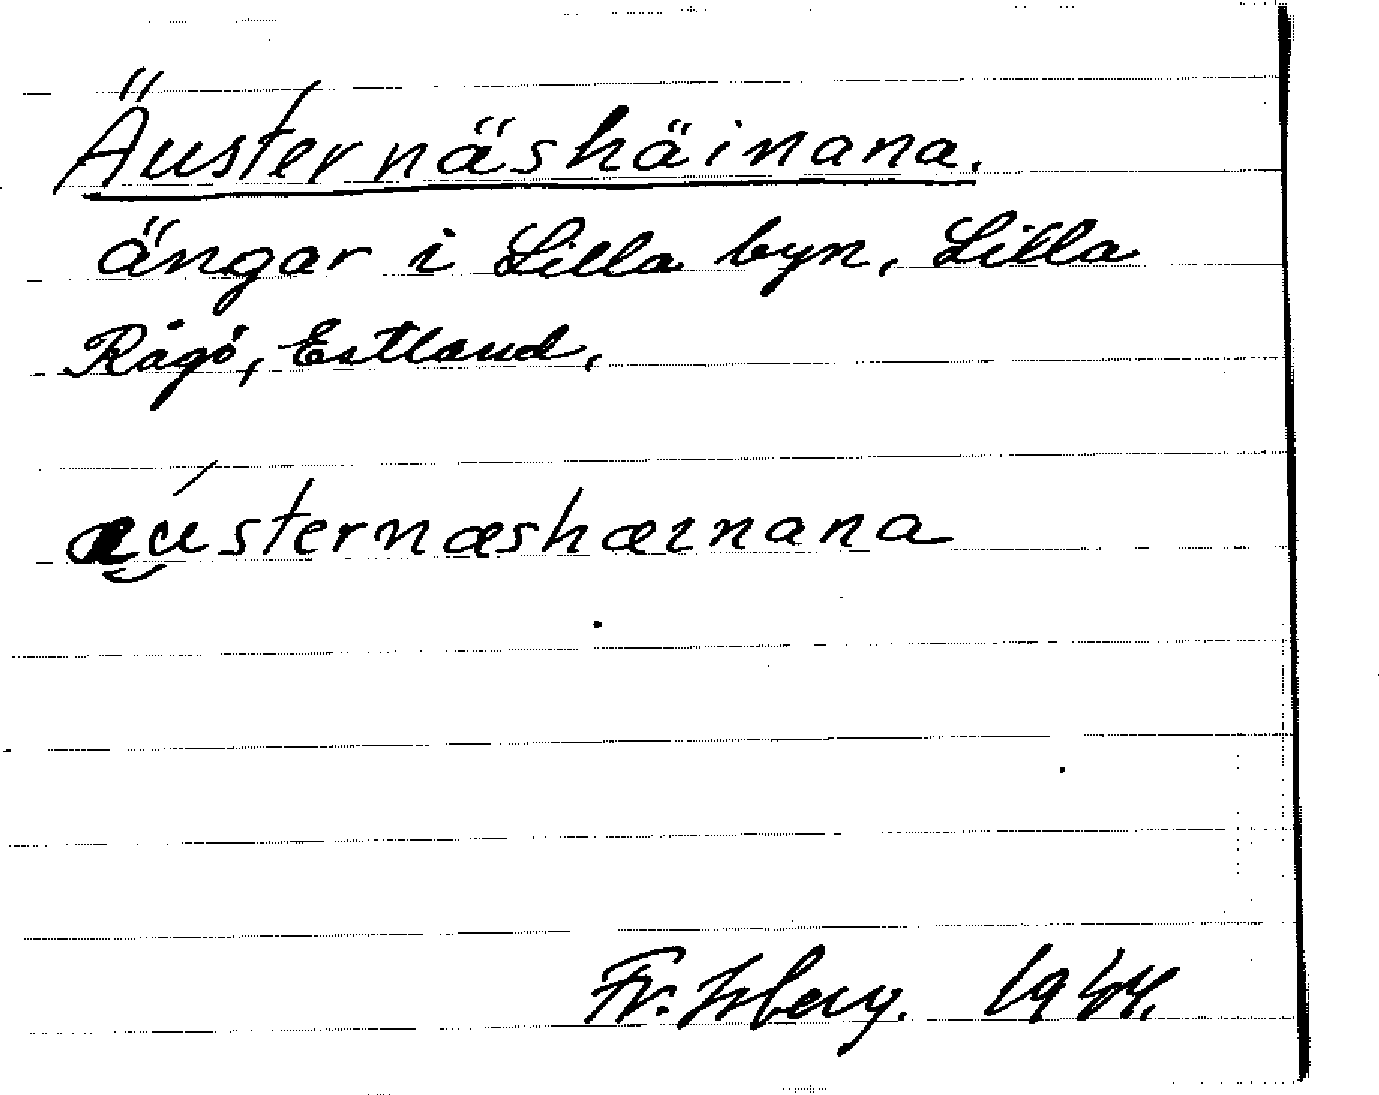 Äusternäshäinana.
ängar i Lilla byn, Lilla
Rågö, Estland,
æú̯sternæshæınana
Fr. Isberg. 1944.